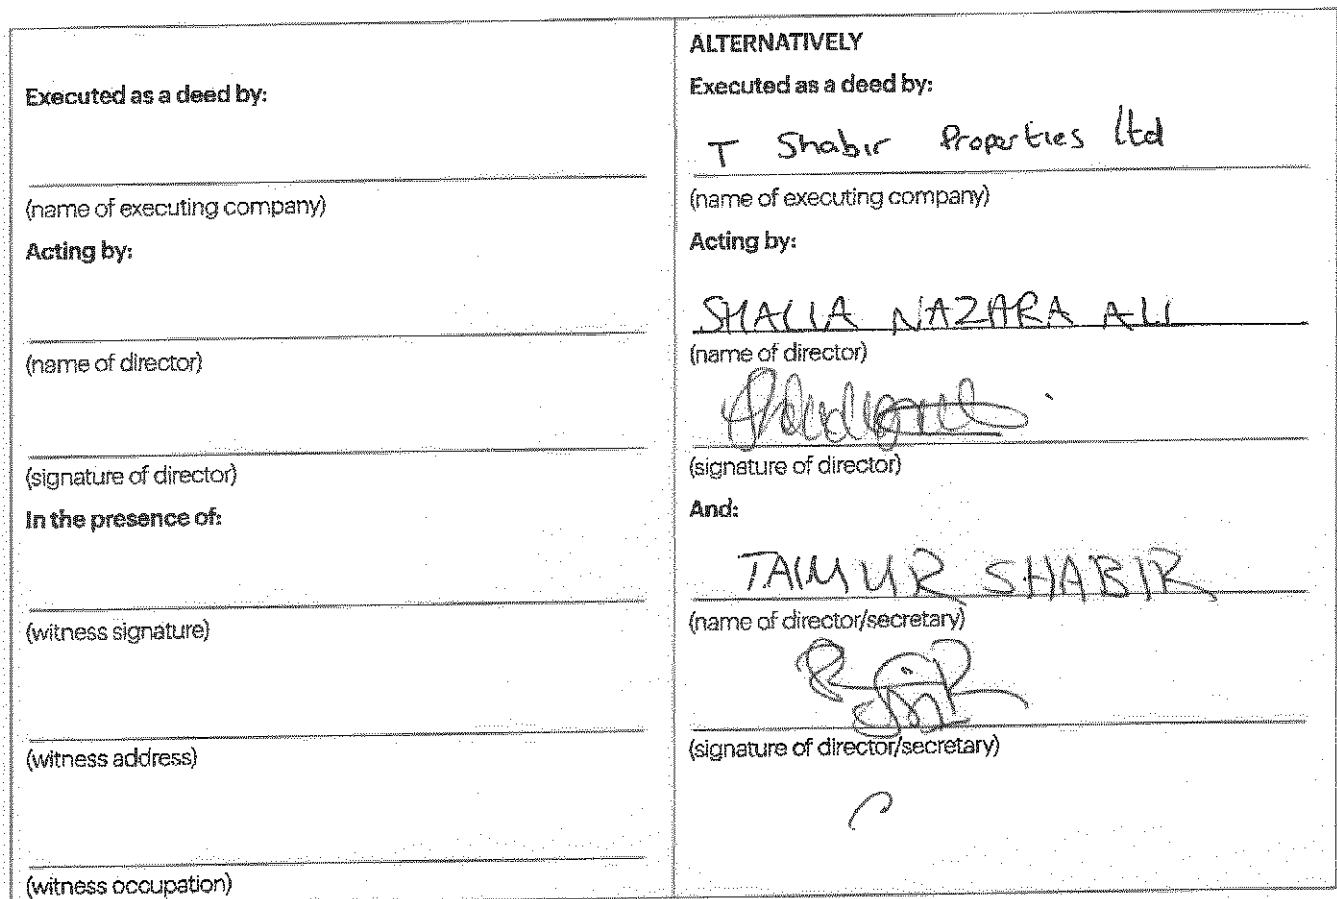 Executed as a deed by:
(name of executing company)
Acting by:
(name of director)
(signature of director)
In the presence of:
(witness signature)
(witness address)
(witness occupation)
ALTERNATIVELY
Executed as a deed by:
T Shabir Properties Ltd
(name of executing company)
Acting by:
SHALIA NAZARA ALI
(name of director)
(signature of director)
And:
TAIMUR SHABIR
(name of director/secretary)
(signature of director/secretary)